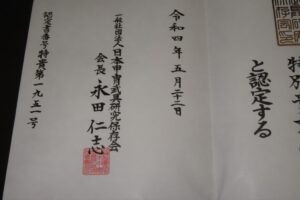 と認定する
令和四年五月二十二日
一般社団法人日本甲冑武具研究保存会
会長 永田仁志
認定書番号特貴第一九五一号